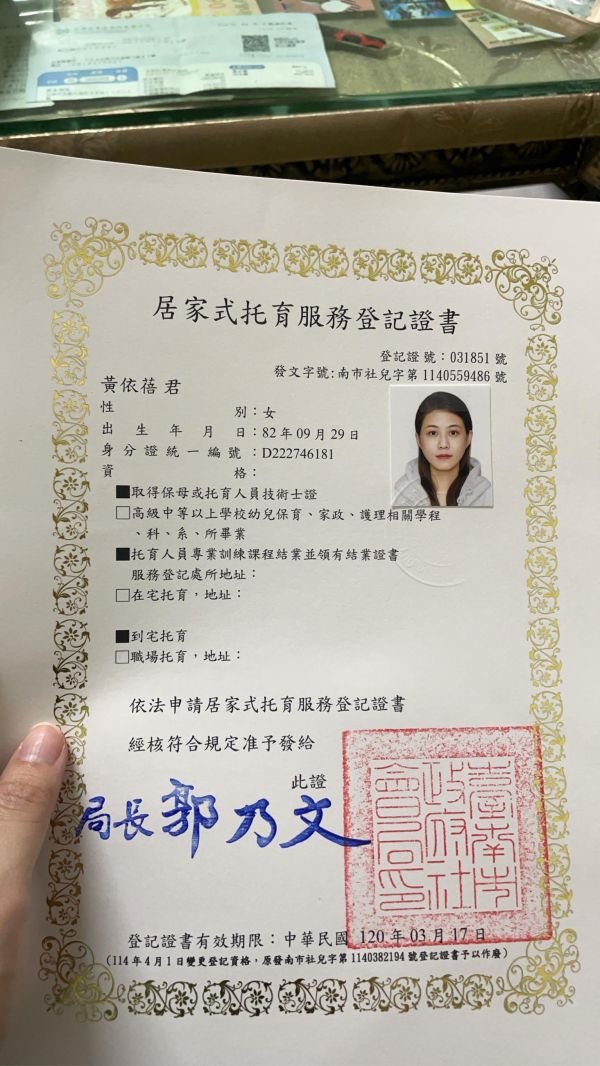 居家式托育服務登記證書
登記證號：031851號
發文字號：南市社兒字第1140559486號
黃依蓓 君
性別：女
出生年月日：82年09月29日
身分證統一編號：D222746181
資格：
■取得保母或托育人員技術士證
□高級中等以上學校幼兒保育、家政、護理相關學程
、科、系、所畢業
■托育人員專業訓練課程結業並領有結業證書
服務登記處所地址：
□在宅托育，地址：
■到宅托育
□職場托育，地址：
依法申請居家式托育服務登記證書
經核符合規定准予發給
此證
局長郭乃文
臺南市
政府社
會局印
登記證書有效期限：中華民國120年03月17日
（114年4月1日變更登記資格，原發南市社兒字第1140382194號登記證書予以作廢）